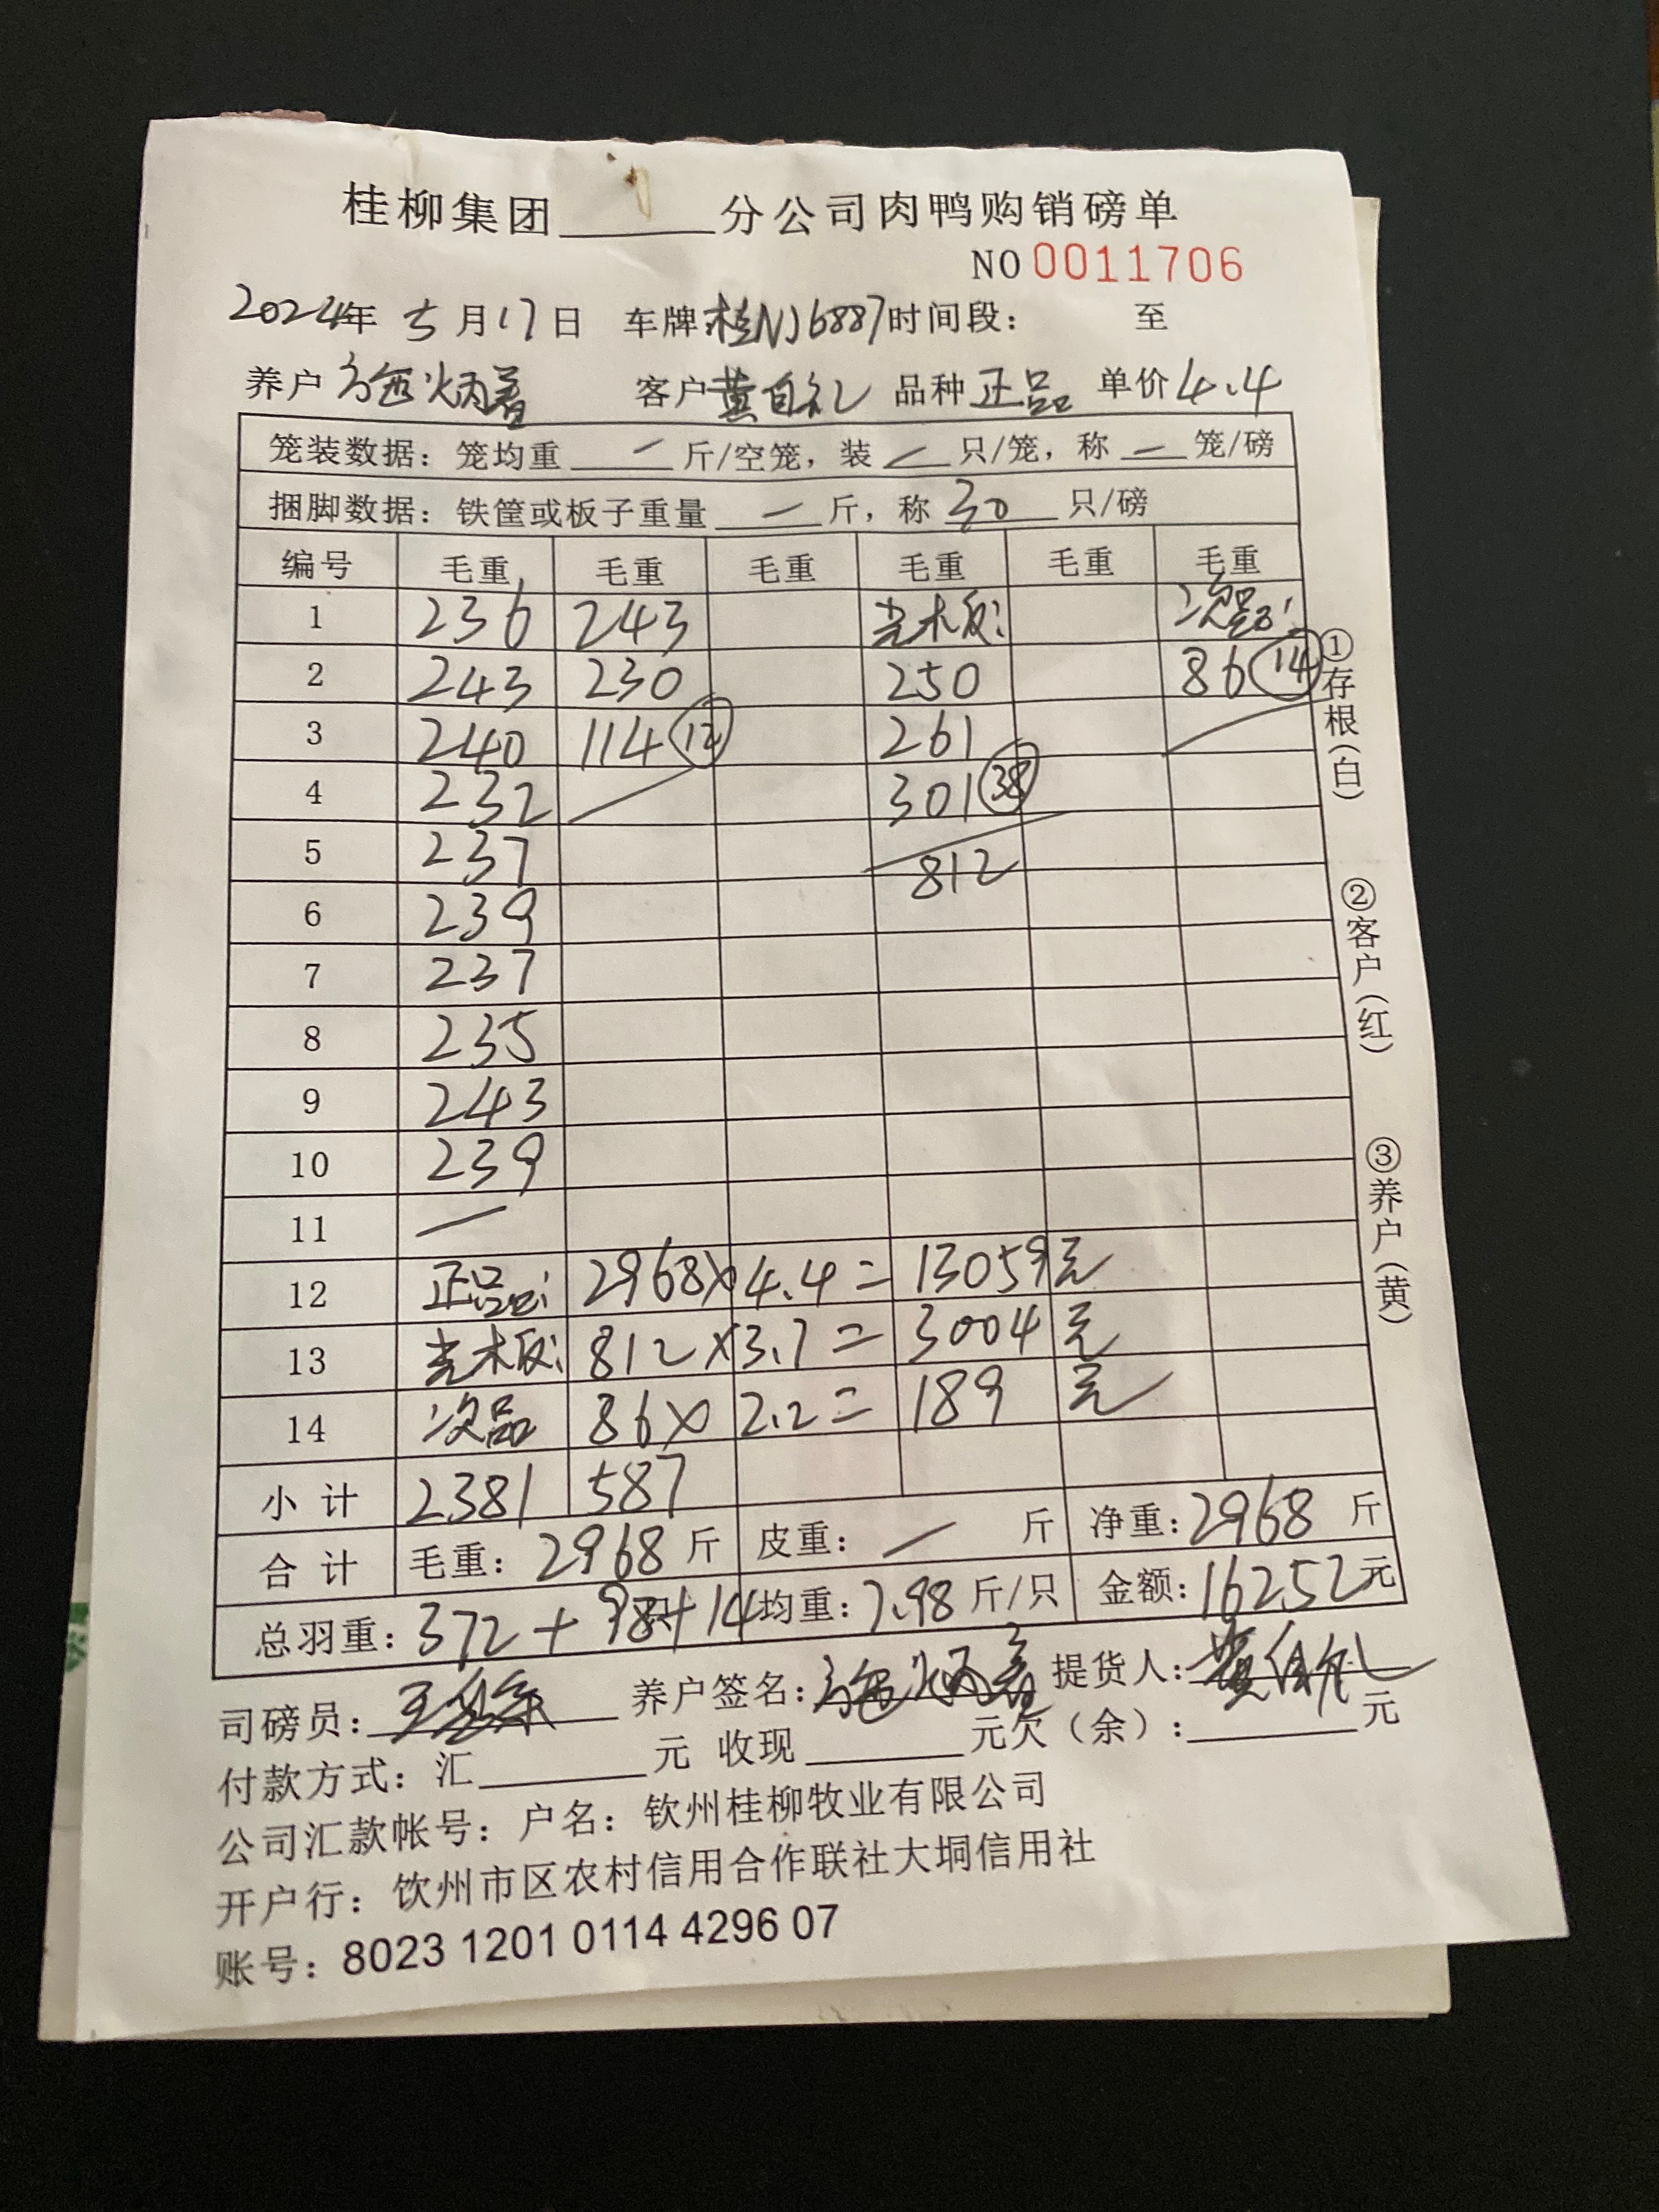 桂柳集团______分公司肉鸭购销磅单
NO 0011706
2024年 5月17日 车牌:桂NJ6887 时间段: 至
养户 施炳着 客户 黄自礼 品种 正品 单价 4.4
笼装数据: 笼均重 一 斤/空笼, 装 一 只/笼, 称 一 笼/磅
捆脚数据: 铁筐或板子重量 一 斤, 称 30 只/磅
编号 毛重 毛重 毛重 毛重 毛重 毛重
1 236 243 光木板: 次品:
2 243 230 250 86 (14)
3 240 114 (12) 261
4 232 301 (38)
5 237 812
6 239
7 237
8 235
9 243
10 239
11 一
12 正品: 2968×4.4= 13059元
13 光木板: 812×3.7= 3004元
14 次品 86×2.2= 189 元
小计 2381 587
合计 毛重: 2968 斤 皮重: 一 斤 净重: 2968 斤
总羽重: 372+98只+14 均重: 7.98 斤/只 金额: 16252元
司磅员: 养户签名: 施炳着 提货人: 黄自礼
付款方式: 汇______元 收现______元欠(余):______元
公司汇款帐号: 户名: 钦州桂柳牧业有限公司
开户行: 钦州市区农村信用合作联社大垌信用社
账号: 8023 1201 0114 4296 07
①存根(白) ②客户(红) ③养户(黄)